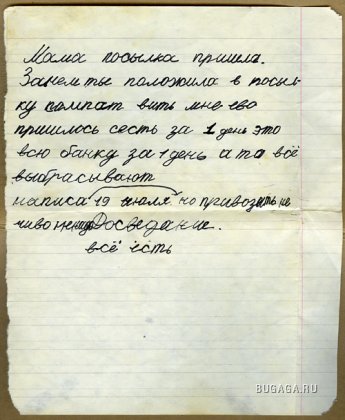 Мама посылка пришла.
Зачем ты положила в посыл-
ку компат вить мне ево
пришлось сесть за 1 день это
всю банку за 1 день а то всё
выбрасывают
написа 19 июля но привозить не
чиво не надо Досведание.
всё есть
BUGAGA.RU